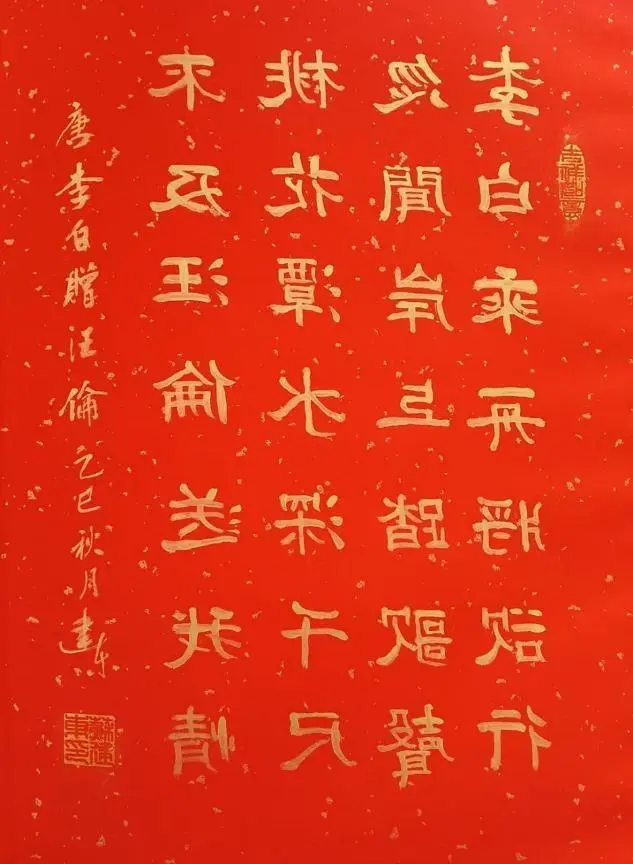 李白乘舟將欲行
忽聞岸上踏歌聲
桃花潭水深千尺
不及汪倫送我情
唐李白贈汪倫乙巳秋月建东